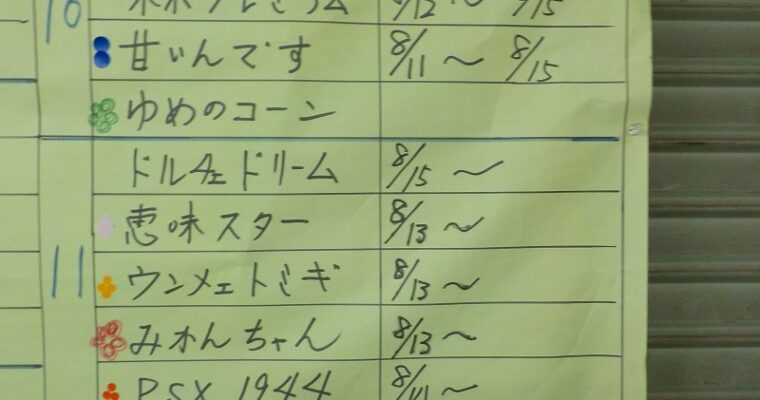 10
8/12 〜 8/15
甘いんです 8/11 〜 8/15
ゆめのコーン
ドルチェドリーム 8/15 〜
11
恵味スター 8/13 〜
ウンメェトミギ 8/13 〜
みわんちゃん 8/13 〜
PSX 1944 8/11 〜